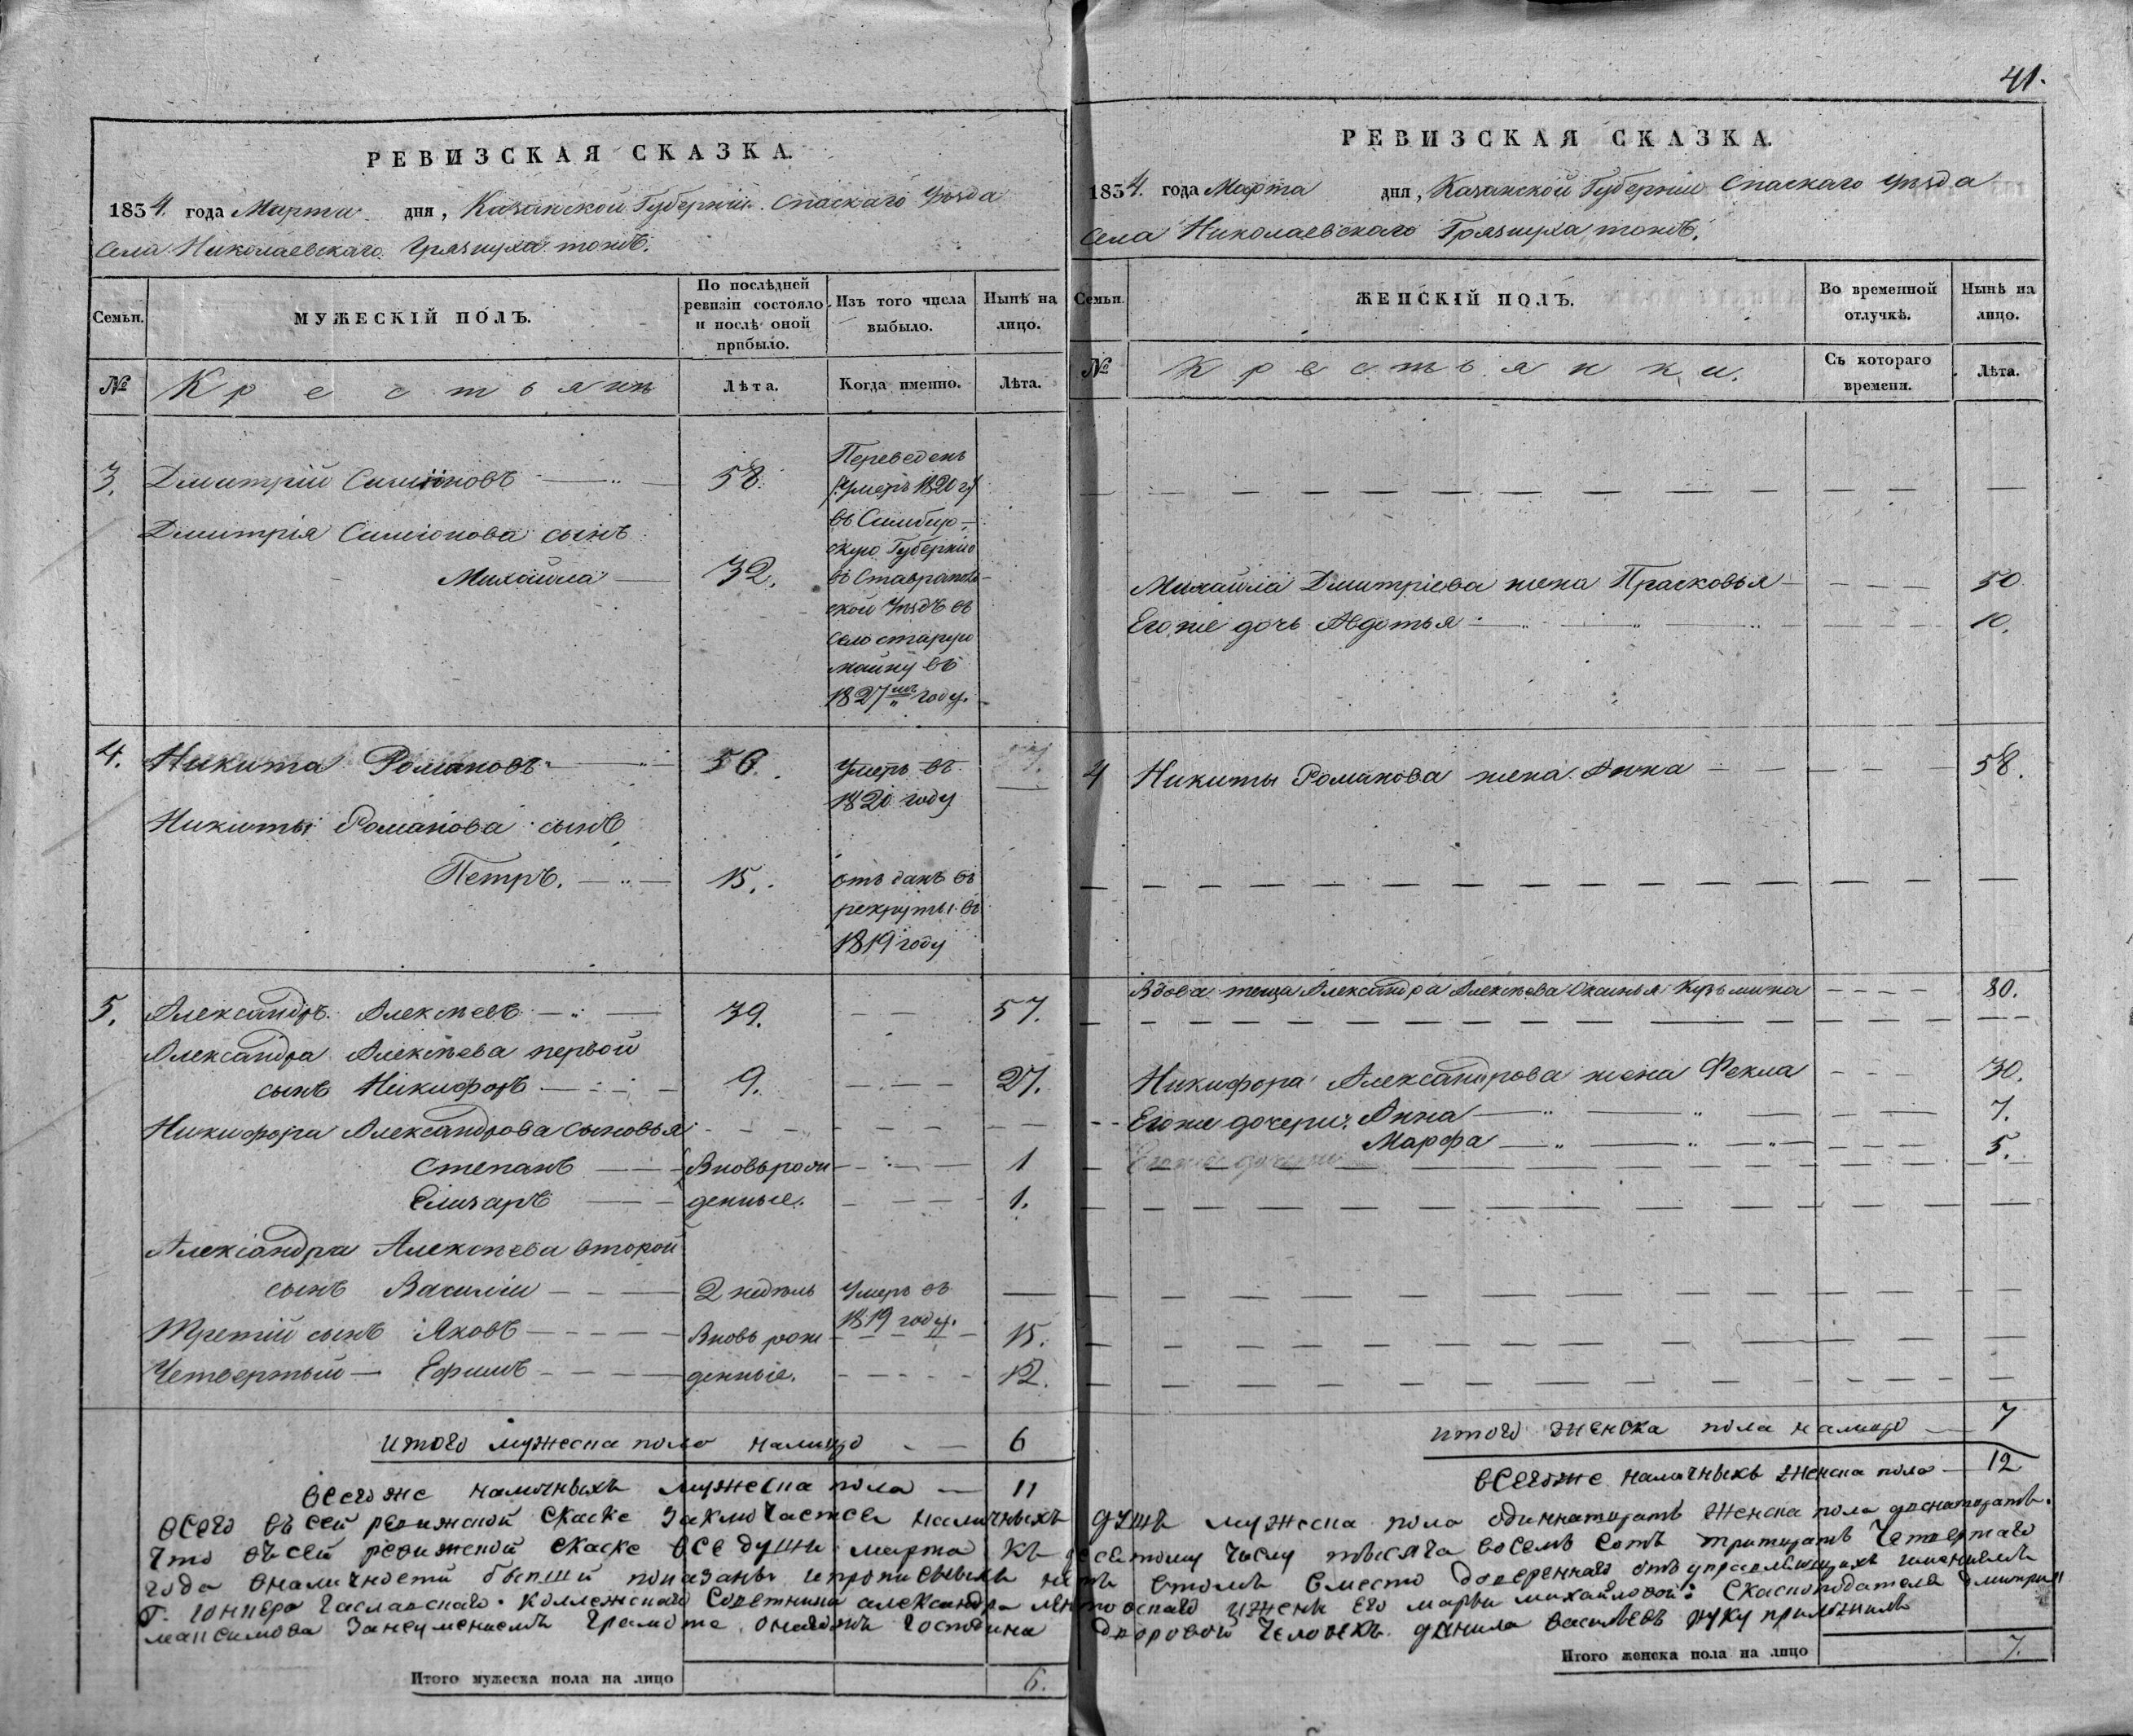 41.
РЕВИЗСКАЯ СКАЗКА.
1834. года Марта дня, Казанской Губерніи Спаскаго Уѣзда
Села Николаевскаго Грязнуха тожъ.
Семьи.
МУЖЕСКІЙ ПОЛЪ.
По послѣдней ревизіи состояло и послѣ оной прибыло.
Изъ того числа выбыло.
Нынѣ на лицо.
№
Крестьянѣ
Лѣта.
Когда именно.
Лѣта.
3. Дмитрій Симіоновъ 58.
Переведенъ
/Умеръ 1820 г/
въ Симбир-
скую Губернію
въ Ставраполь-
ской Уѣздъ въ
село старую
майну въ
1827мъ году.
Дмитрія Симіонова сынъ
Михайла 32.
4. Никита Романовъ 56. Умеръ въ
1820 году
Никиты Романова сынъ
Петръ. 15. отъ данъ въ
рекруты въ
1819 году
5. Александръ Алексѣевъ 39. 57.
Александра Алексѣева первой
сынъ Никифоръ 9. 27.
Никифора Александрова сыновья
Степанъ Вновьрож 1
Елизаръ денные. 1.
Александра Алексѣева второй
сынъ Василіи 2 недѣль Умеръ въ
1819 году.
Третій сынъ Яковъ Вновь рож 15.
Четвертый Ефимъ денные. 12.
итого мужеска пола налицо 6
всегоже наличныхъ мужеска пола 11
РЕВИЗСКАЯ СКАЗКА.
1834. года Марта дня, Казанской Губерніи Спаскаго Уѣзда
Села Николаевскаго Грязнуха тожъ.
Семьи.
ЖЕНСКІЙ ПОЛЪ.
Во временной отлучкѣ.
Нынѣ на лицо.
№
Крестьянки.
Съ котораго времени.
Лѣта.
Михайла Дмитріева жена Прасковья 50
Его же дочь Авдотья 10.
4 Никиты Романова жена Анна 58.
Вдова теща Александра Алексѣева Оксинья Кузьмина 80.
Никифора Александрова жена Фекла 30.
Егоже дочери: Анна 7.
Марфа 5.
Егоже дочери
итого женска пола налицо 7
всегоже наличныхъ женска пола 12
всего въ сей ревижской скаске заключается наличныхъ душъ мужеска пола одиннатцать женска пола двенатцать.
Что въ сей ревижской скаске все души марта къ десятому числу тысяча восемь сотъ тритцать четвертаго
года вналичности бывши показаны ипрописныхъ нетъ втомъ вместо довереннаго отъ управляющихъ имениемъ
Г. юнкера Чаславскаго. Коллежскаго Советника александра ижены его марьи михайловой: Скаскоподателя дмитрия
максимова Занеумениемъ грамоте, онагожъ Господина дворовой человекъ данила васильевъ руку приложилъ
Итого мужеска пола на лицо 6.
Итого женска пола на лицо 7.